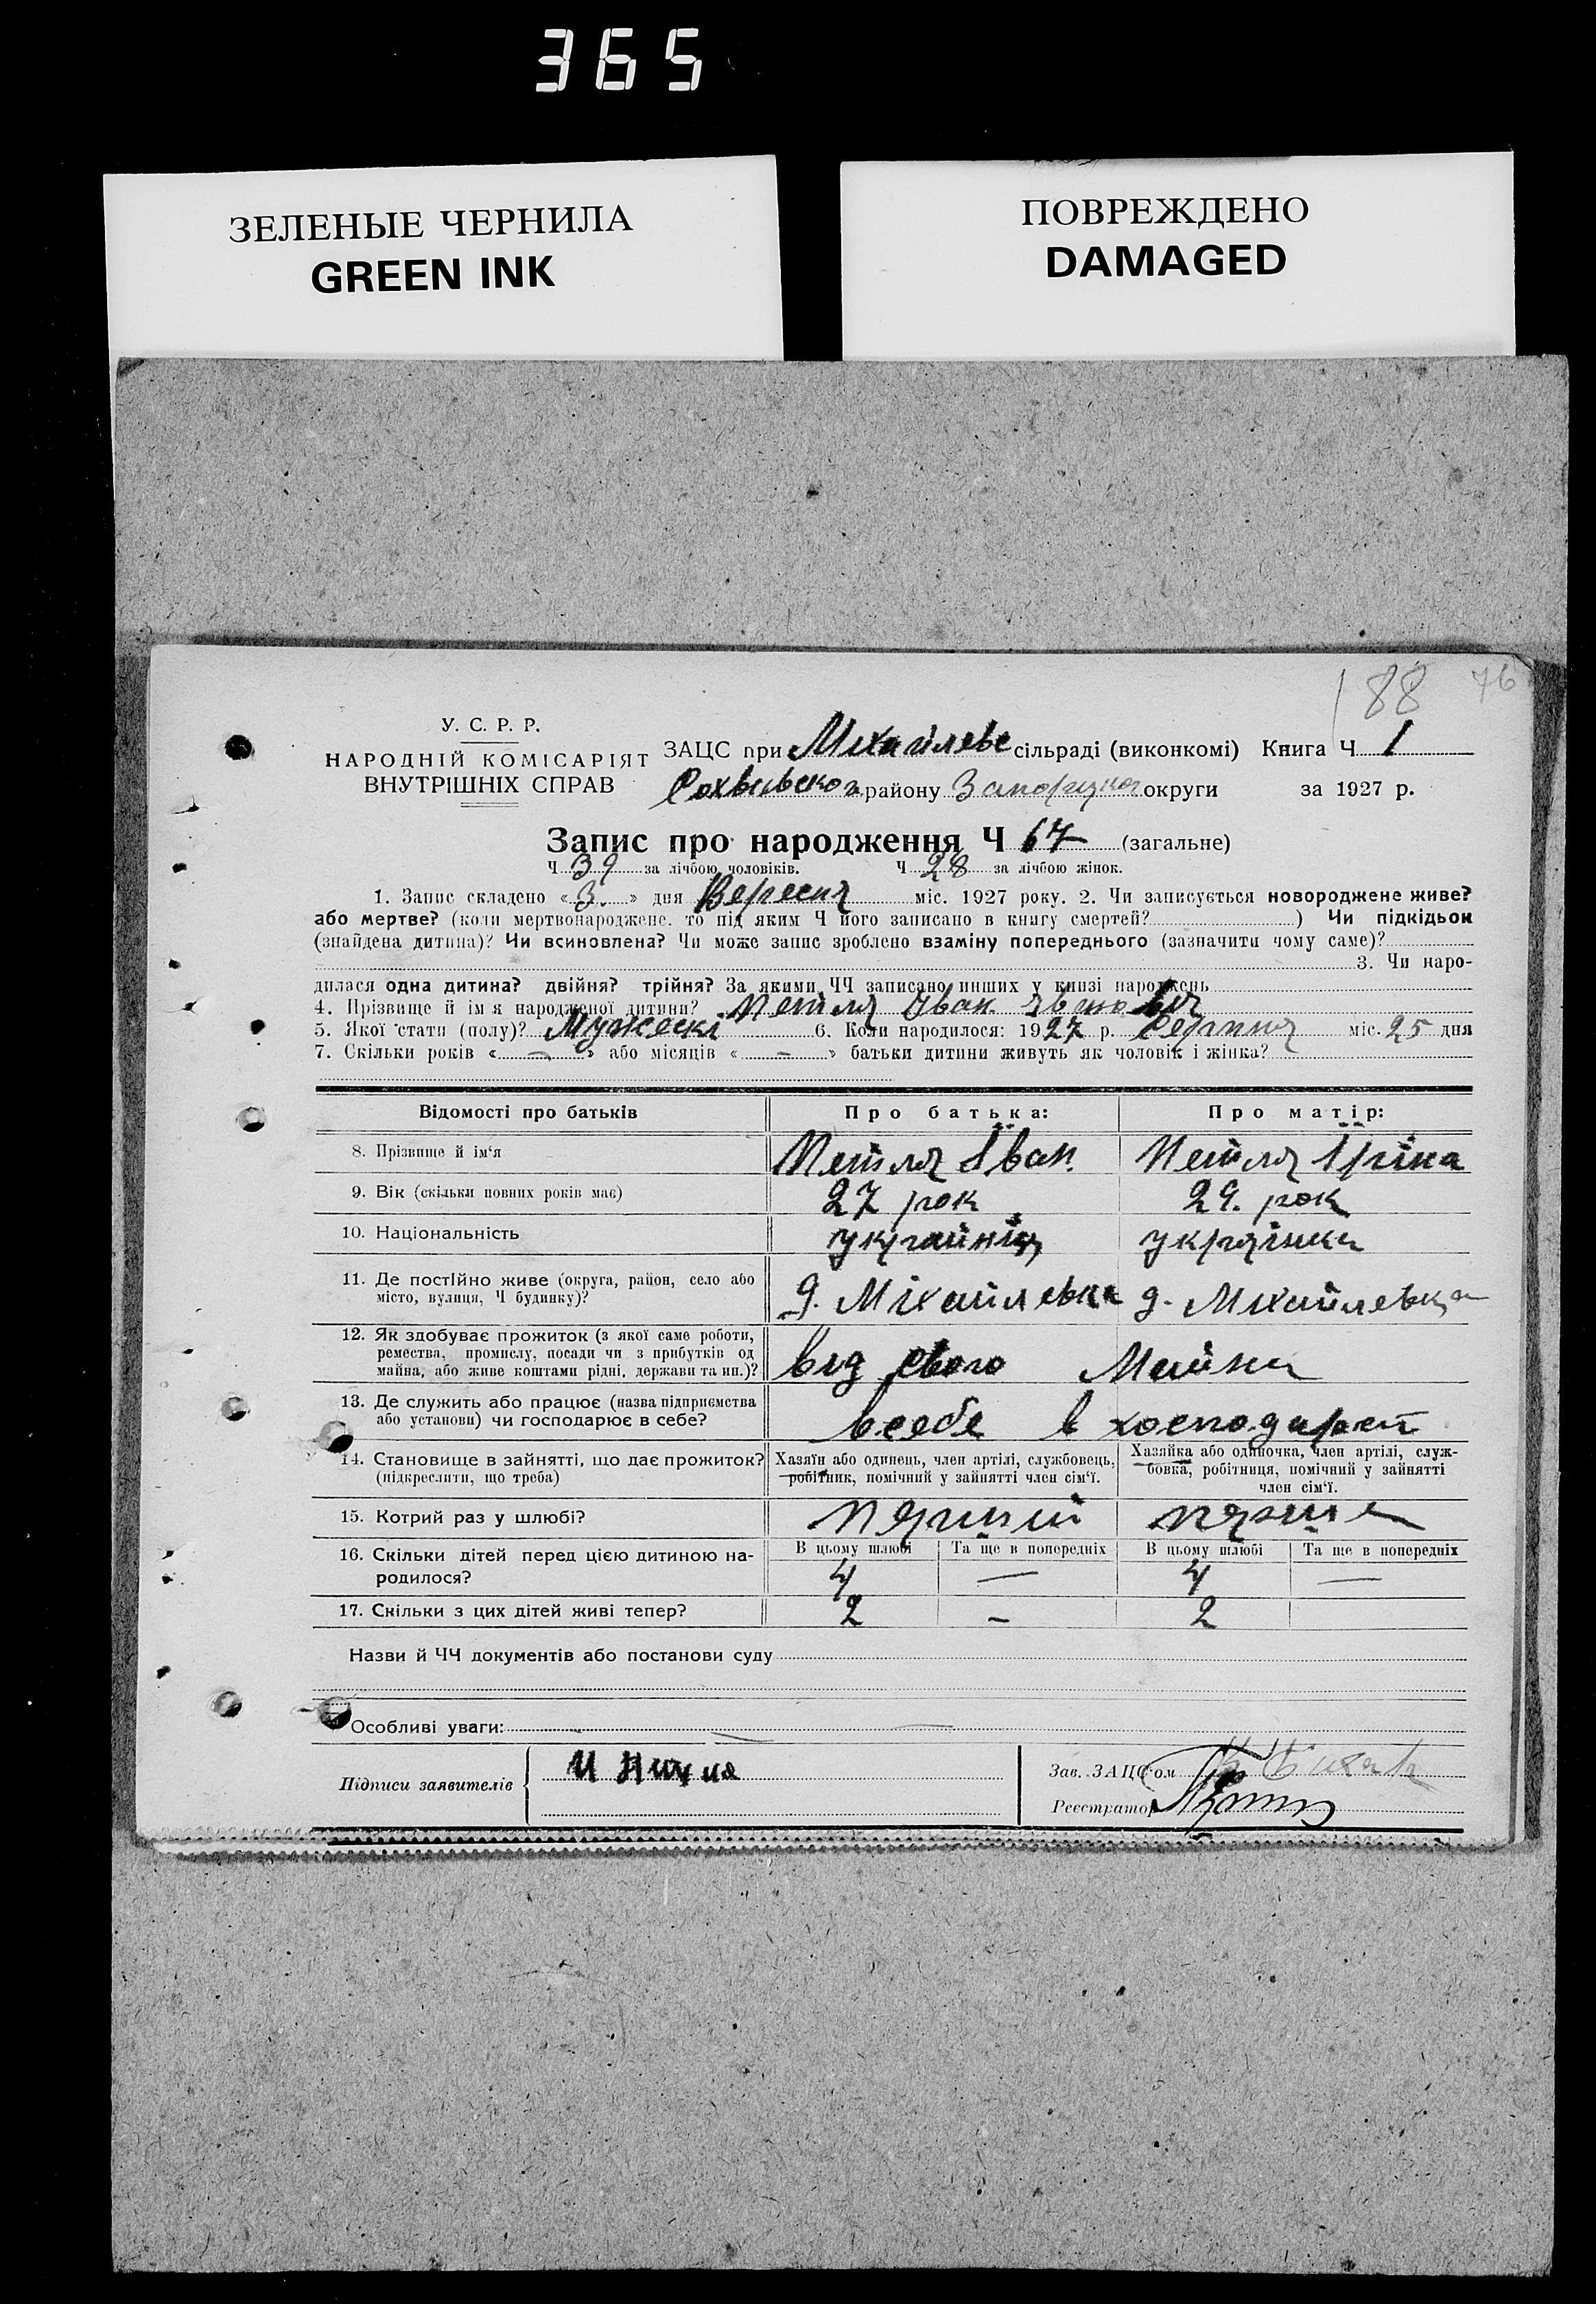 365
ЗЕЛЕНЫЕ ЧЕРНИЛА
GREEN INK
ПОВРЕЖДЕНО
DAMAGED
88 76
У. С. Р. Р.
НАРОДНІЙ КОМІСАРІЯТ
ВНУТРІШНІХ СПРАВ
ЗАЦС при Михайлевс сільраді (виконкомі) Книга Ч 1
району округи за 1927 р.
Запис про народження Ч 67 (загальне)
Ч 39 за лічбою чоловіків. Ч 28 за лічбою жінок.
1. Запис складено «3» дня Вересня міс. 1927 року. 2. Чи записується новороджене живе?
або мертве? (коли мертвонароджене, то під яким Ч його записано в книгу смертей? ) Чи підкідьок
(знайдена дитина)? Чи всиновлена? Чи може запис зроблено взаміну попереднього (зазначити чому саме)?
3. Чи наро-
дилася одна дитина? двійня? трійня? За якими ЧЧ записано инших у книзі народжень
4. Прізвище й ім я народженої дитини? Петля Іван Івнович
5. Якої стати (полу)? Мужескі 6. Коли народилося: 1927 р. Серпня міс. 25 дня
7. Скільки років « – » або місяців « – » батьки дитини живуть як чоловік і жінка?
Відомості про батьків Про батька: Про матір:
8. Прізвище й ім'я Петля Іван. Петля Іріна
9. Вік (скільки повних років має) 27 рок 29. рок
10. Національність украйніц українка
11. Де постійно живе (округа, район, село або
місто, вулиця, Ч будинку)? д. Міхайлевка д. Михайлевка
12. Як здобуває прожиток (з якої саме роботи,
ремества, промислу, посади чи з прибутків од
майна, або живе коштами рідні, держави та ин.)? від свого Майна
13. Де служить або працює (назва підприємства
або установи) чи господарює в себе? в себе в
14. Становище в зайнятті, що дає прожиток?
(підкреслити, що треба)
Хазяїн або одинець, член артілі, службовець,
робітник, помічний у зайнятті член сім'ї.
Хазяйка або одиночка, член артілі, служ-
бовка, робітниця, помічний у зайнятті
член сім'ї.
15. Котрий раз у шлюбі? перший перша
В цьому шлюбі Та ще в попередніх В цьому шлюбі Та ще в попередніх
16. Скільки дітей перед цією дитиною на-
родилося? 4 — 4 —
17. Скільки з цих дітей живі тепер? 2 – 2
Назви й ЧЧ документів або постанови суду
Особливі уваги:
Підписи заявителів
Зав. ЗАЦС'ом
Реєстратор